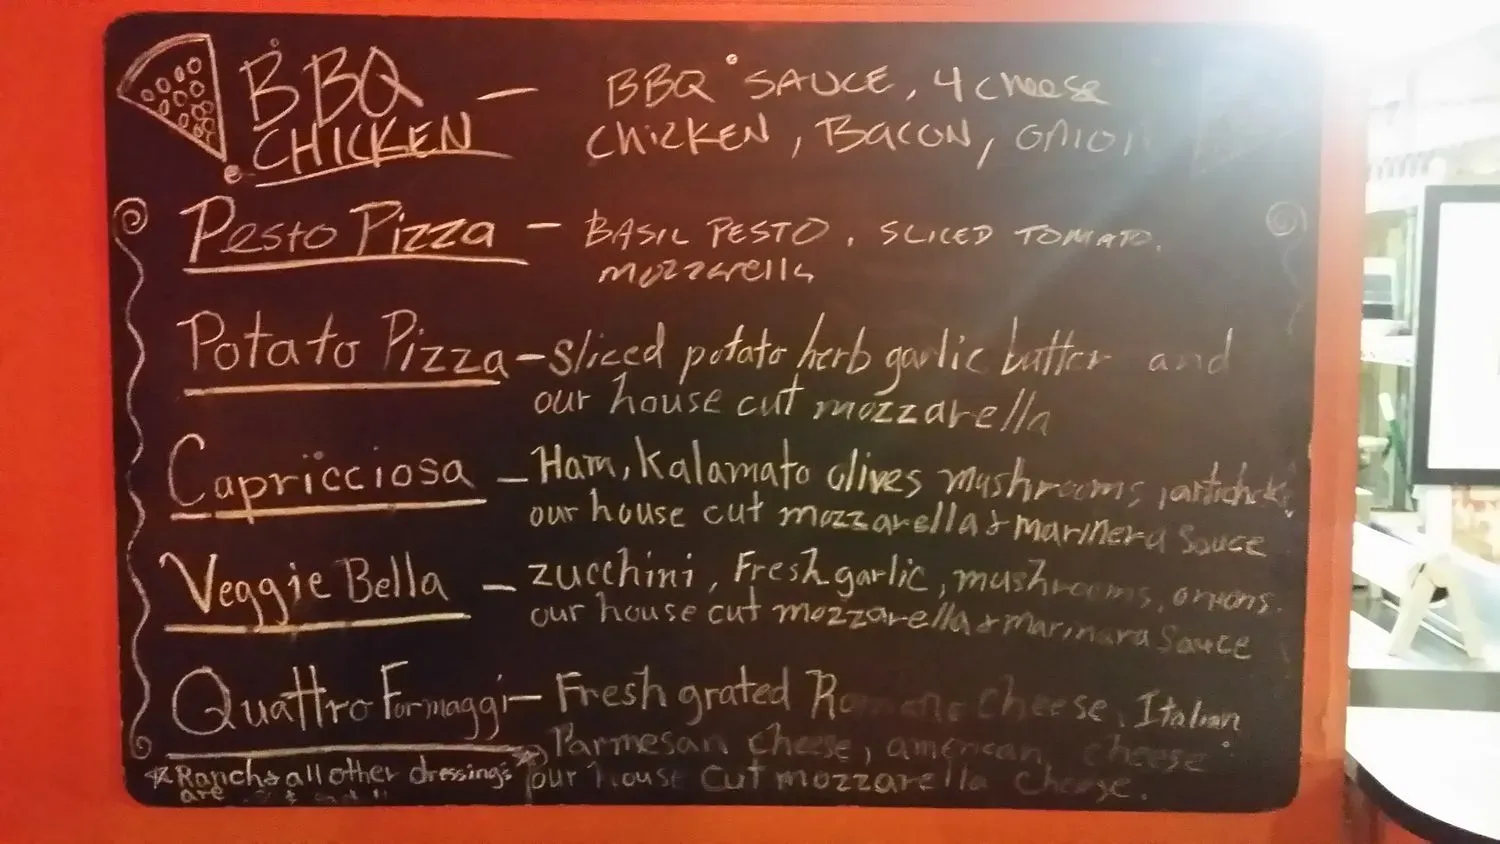 BBQ CHICKEN — BBQ SAUCE, 4 cheese
CHICKEN, BACON, ONION
Pesto Pizza — BASIL PESTO, SLICED TOMATO,
mozzarella
Potato Pizza — Sliced potato herb garlic butter and
our house cut mozzarella
Capricciosa — Ham, Kalamato olives mushrooms, artichoke,
our house cut mozzarella & marinera Sauce
Veggie Bella — zucchini, Fresh garlic, mushrooms, onions,
our house cut mozzarella & marinara Sauce
Quattro Formaggi — Fresh grated Romano Cheese, Italian
Parmesan cheese, american cheese
our house cut mozzarella cheese.
Ranch & all other dressings
are